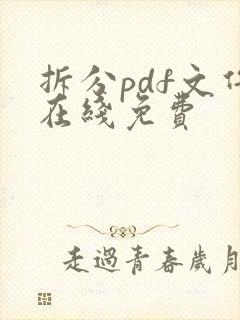 拆分pdf文件
在綫免費
走過青春歲月